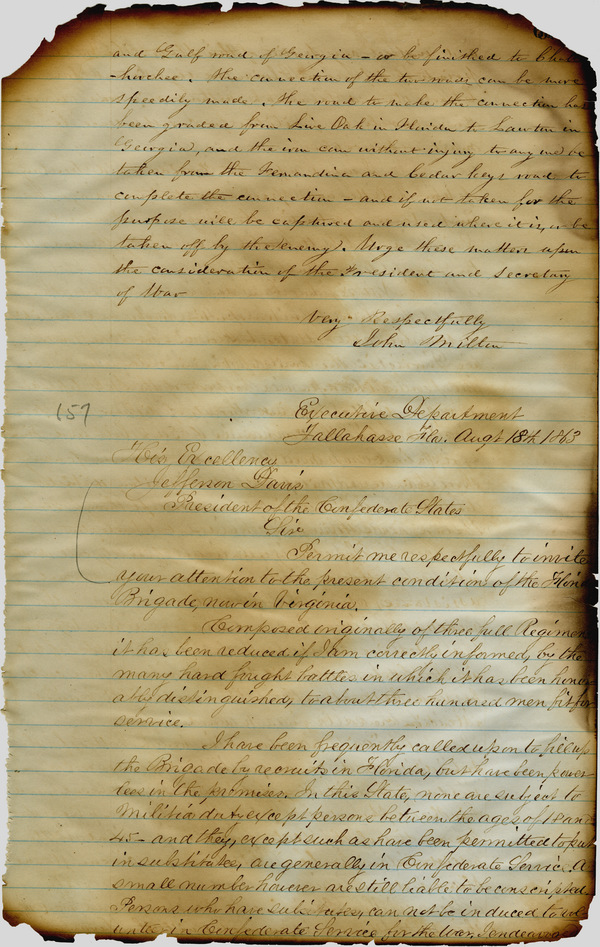 and Gulf road of Georgia - or be finished to Chat-
-hoochee. The connection of the two roads can be more
speedily made. The road to make the connection has
been graded from Live Oak in Florida to Lawton in
Georgia, and the iron can without injury to any one be
taken from the Fernandina and Cedar Keys road to
complete the connection - and if not taken for the
purpose will be captured and used where it is, or be
taken off by the enemy. Urge these matters upon
the consideration of the President and Secretary
of War
Very Respectfully
John Milton
157
Executive Department
Tallahasse Fla. Augt 18th 1863
His Excellency
Jefferson Davis
President of the Confederate States
Sir
Permit me respectfully to invite
your attention to the present condition of the Flori
Brigade, now in Virginia.
Composed originally of three full Regimen
it has been reduced if I am correctly informed, by the
many hard fought battles in which it has been honor
ably distinguished, to about three hundred men fit for
service.
I have been frequently called upon to fill up
the Brigade by recruits in Florida, but have been power
less in the premises. In this State, none are subject to
Militia duty except persons between the ages of 18 and
45 - and they, except such as have been permitted to put
in substitutes, are generally in Confederate Service. A
small number however are still liable to be conscripted.
Persons who have substitutes, can not be induced to vol
unteer in Confederate Service for the war. I endeavor